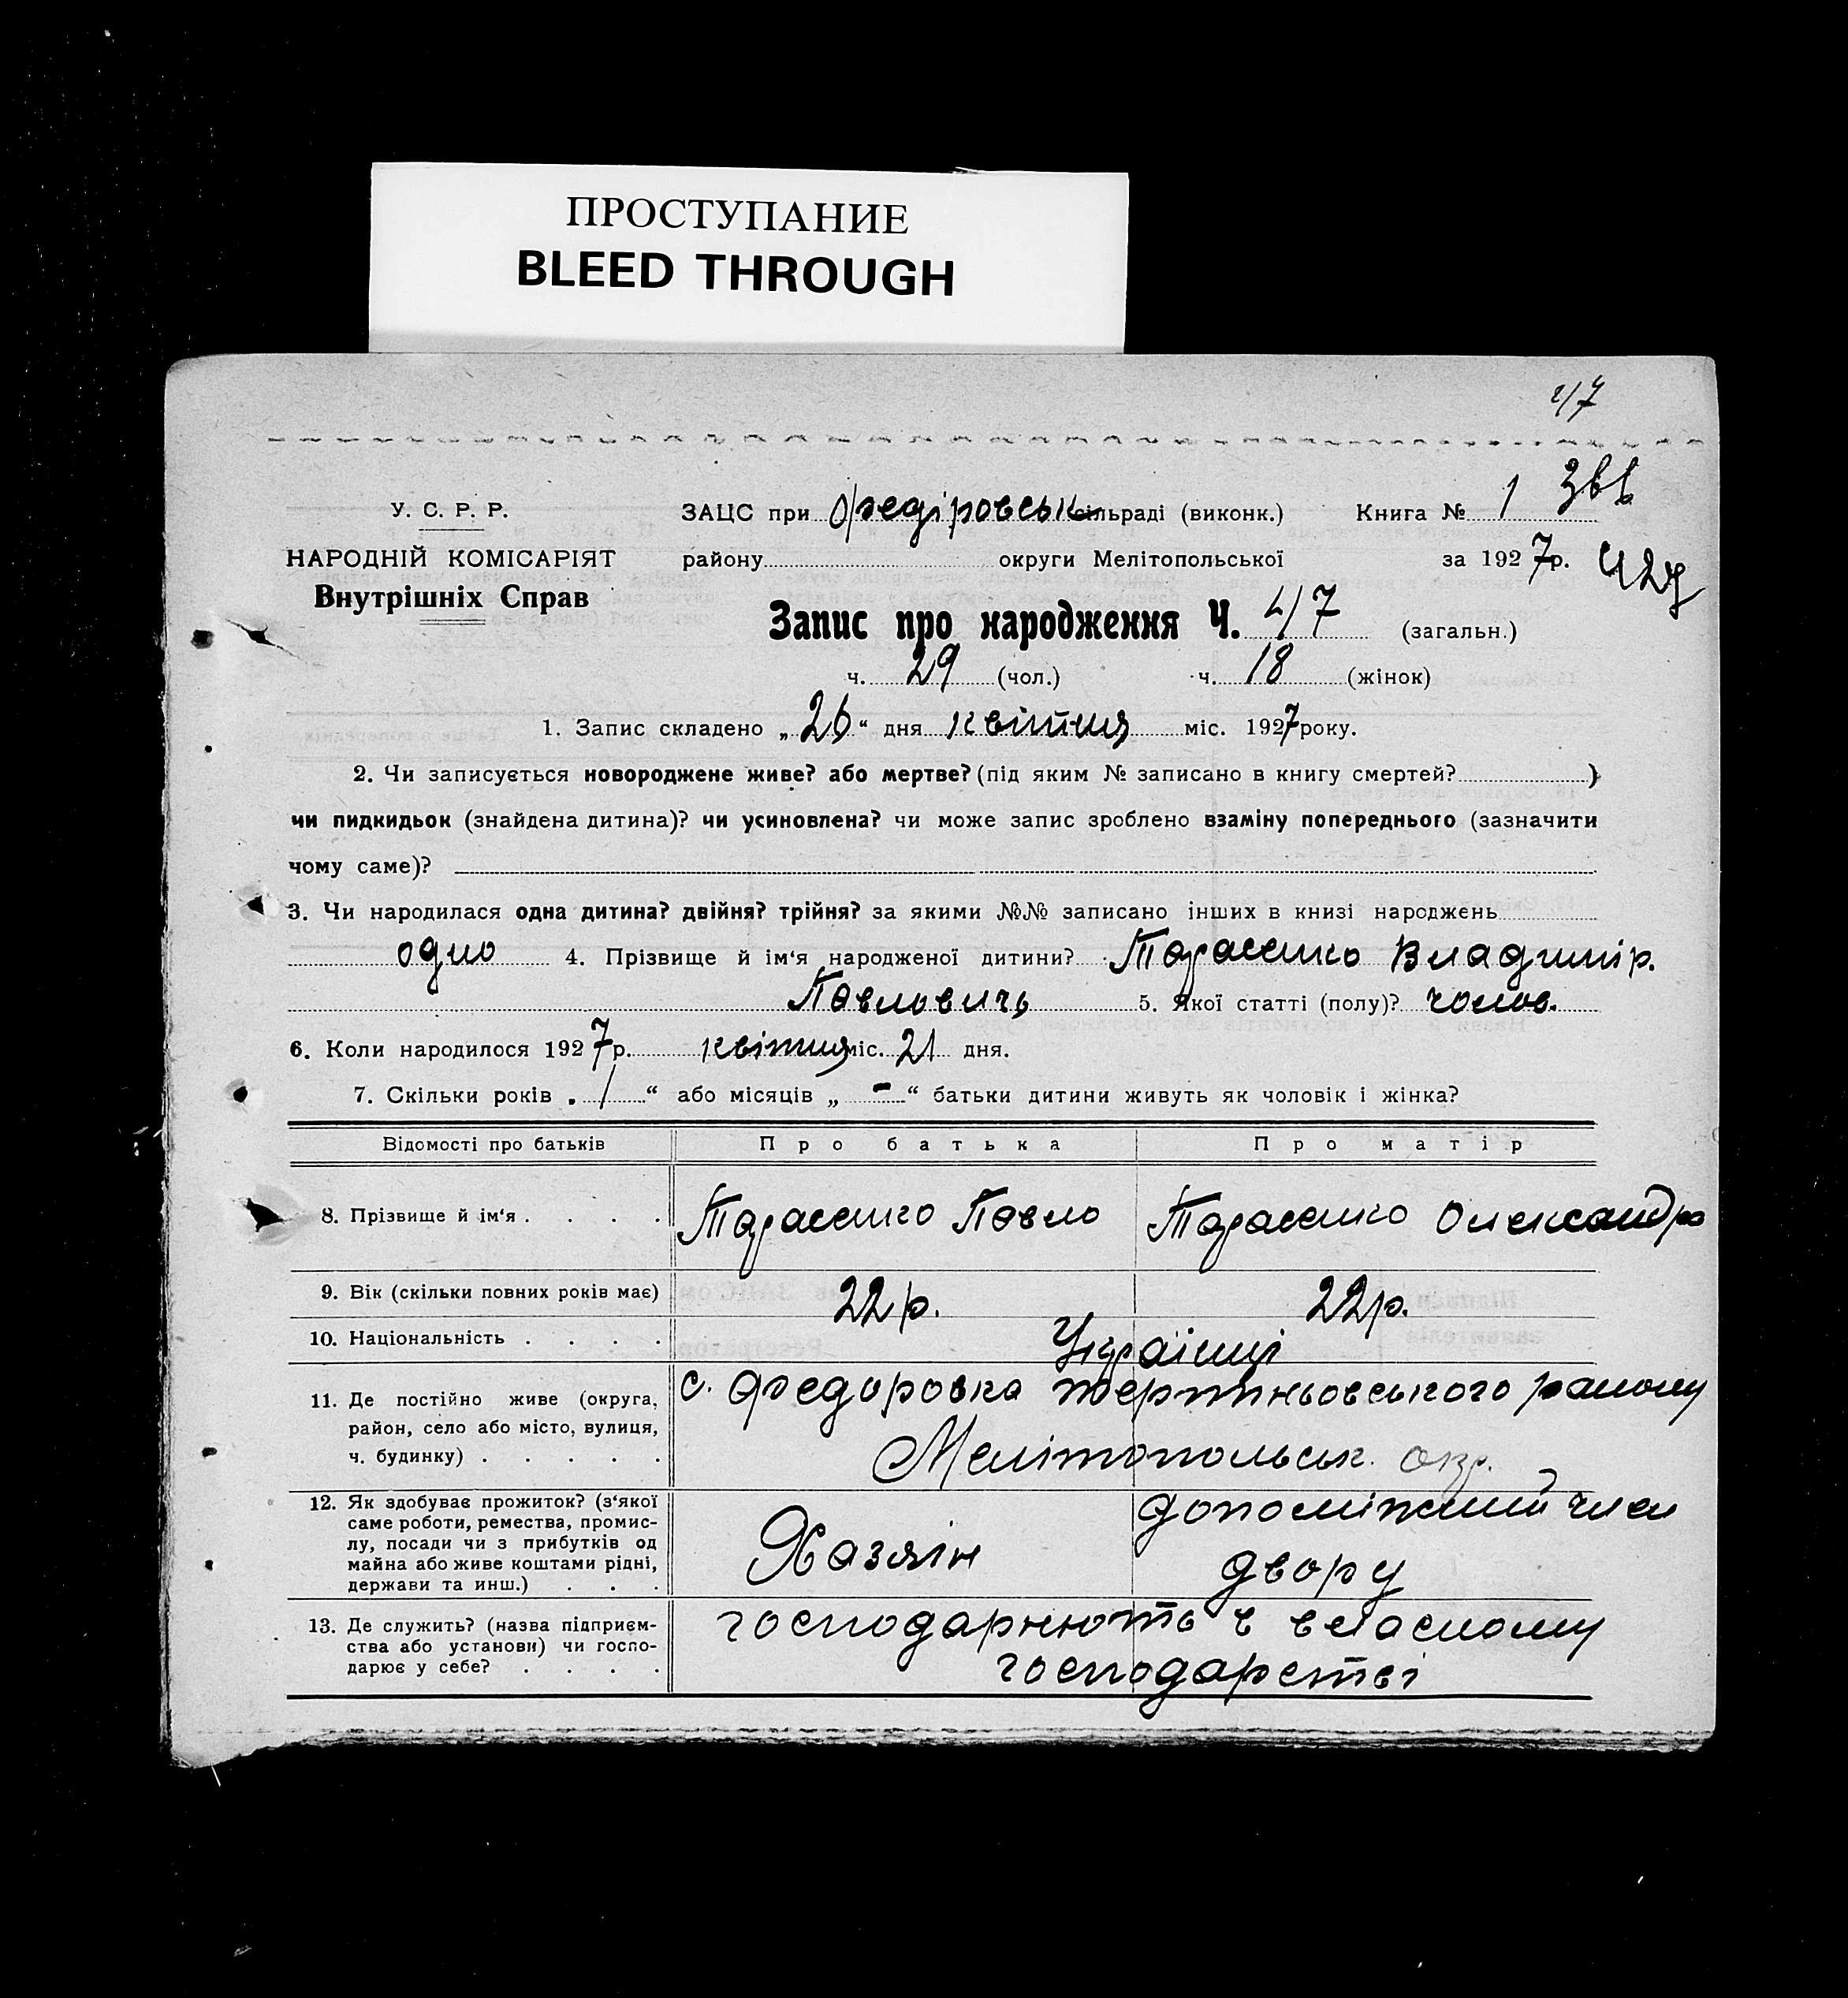 ПРОСТУПАНИЕ
BLEED THROUGH
47
У. С. Р. Р.
НАРОДНІЙ КОМІСАРІЯТ
Внутрішніх Справ
ЗАЦС при Федіровськ сільраді (виконк.) Книга № 1
району округи Мелітопольської за 1927р.
Запис про народження Ч. 47 (загальн.)
ч. 29 (чол.) ч. 18 (жінок)
1. Запис складено „26“ дня квітня міс. 1927 року.
2. Чи записується новороджене живе? або мертве? (під яким № записано в книгу смертей? )
чи пидкидьок (знайдена дитина)? чи усиновлена? чи може запис зроблено взаміну попереднього (зазначити
чому саме)?
3. Чи народилася одна дитина? двійня? трійня? за якими №№ записано інших в книзі народжень
одно 4. Прізвище й ім‘я народженої дитини? Тарасенко Владимір.
Павловичь 5. Якої статті (полу)? чолов.
6. Коли народилося 1927р. квітня міс. 21 дня.
7. Скільки років „1“ або місяців „-“ батьки дитини живуть як чоловік і жінка?
Відомості про батьків Про батька Про матір
8. Прізвище й ім‘я . . . . Тарасенко Павло Тарасенко Олександра
9. Вік (скільки повних років має) 22 р. 22 р.
10. Національність . . . . Українці
11. Де постійно живе (округа,
район, село або місто, вулиця,
ч. будинку) . . . . .
с. Федоровка терпіньовського району
Мелітопольськ. окр.
12. Як здобуває прожиток? (з‘якої
саме роботи, ремества, промис-
лу, посади чи з прибутків од
майна або живе коштами рідні,
держави та инш.) . . .
Хазяін
допоміжний член
двору
13. Де служить? (назва підприєм-
ства або установи) чи госпо-
дарює у себе? . . . .
господарюють в власному
господарстві